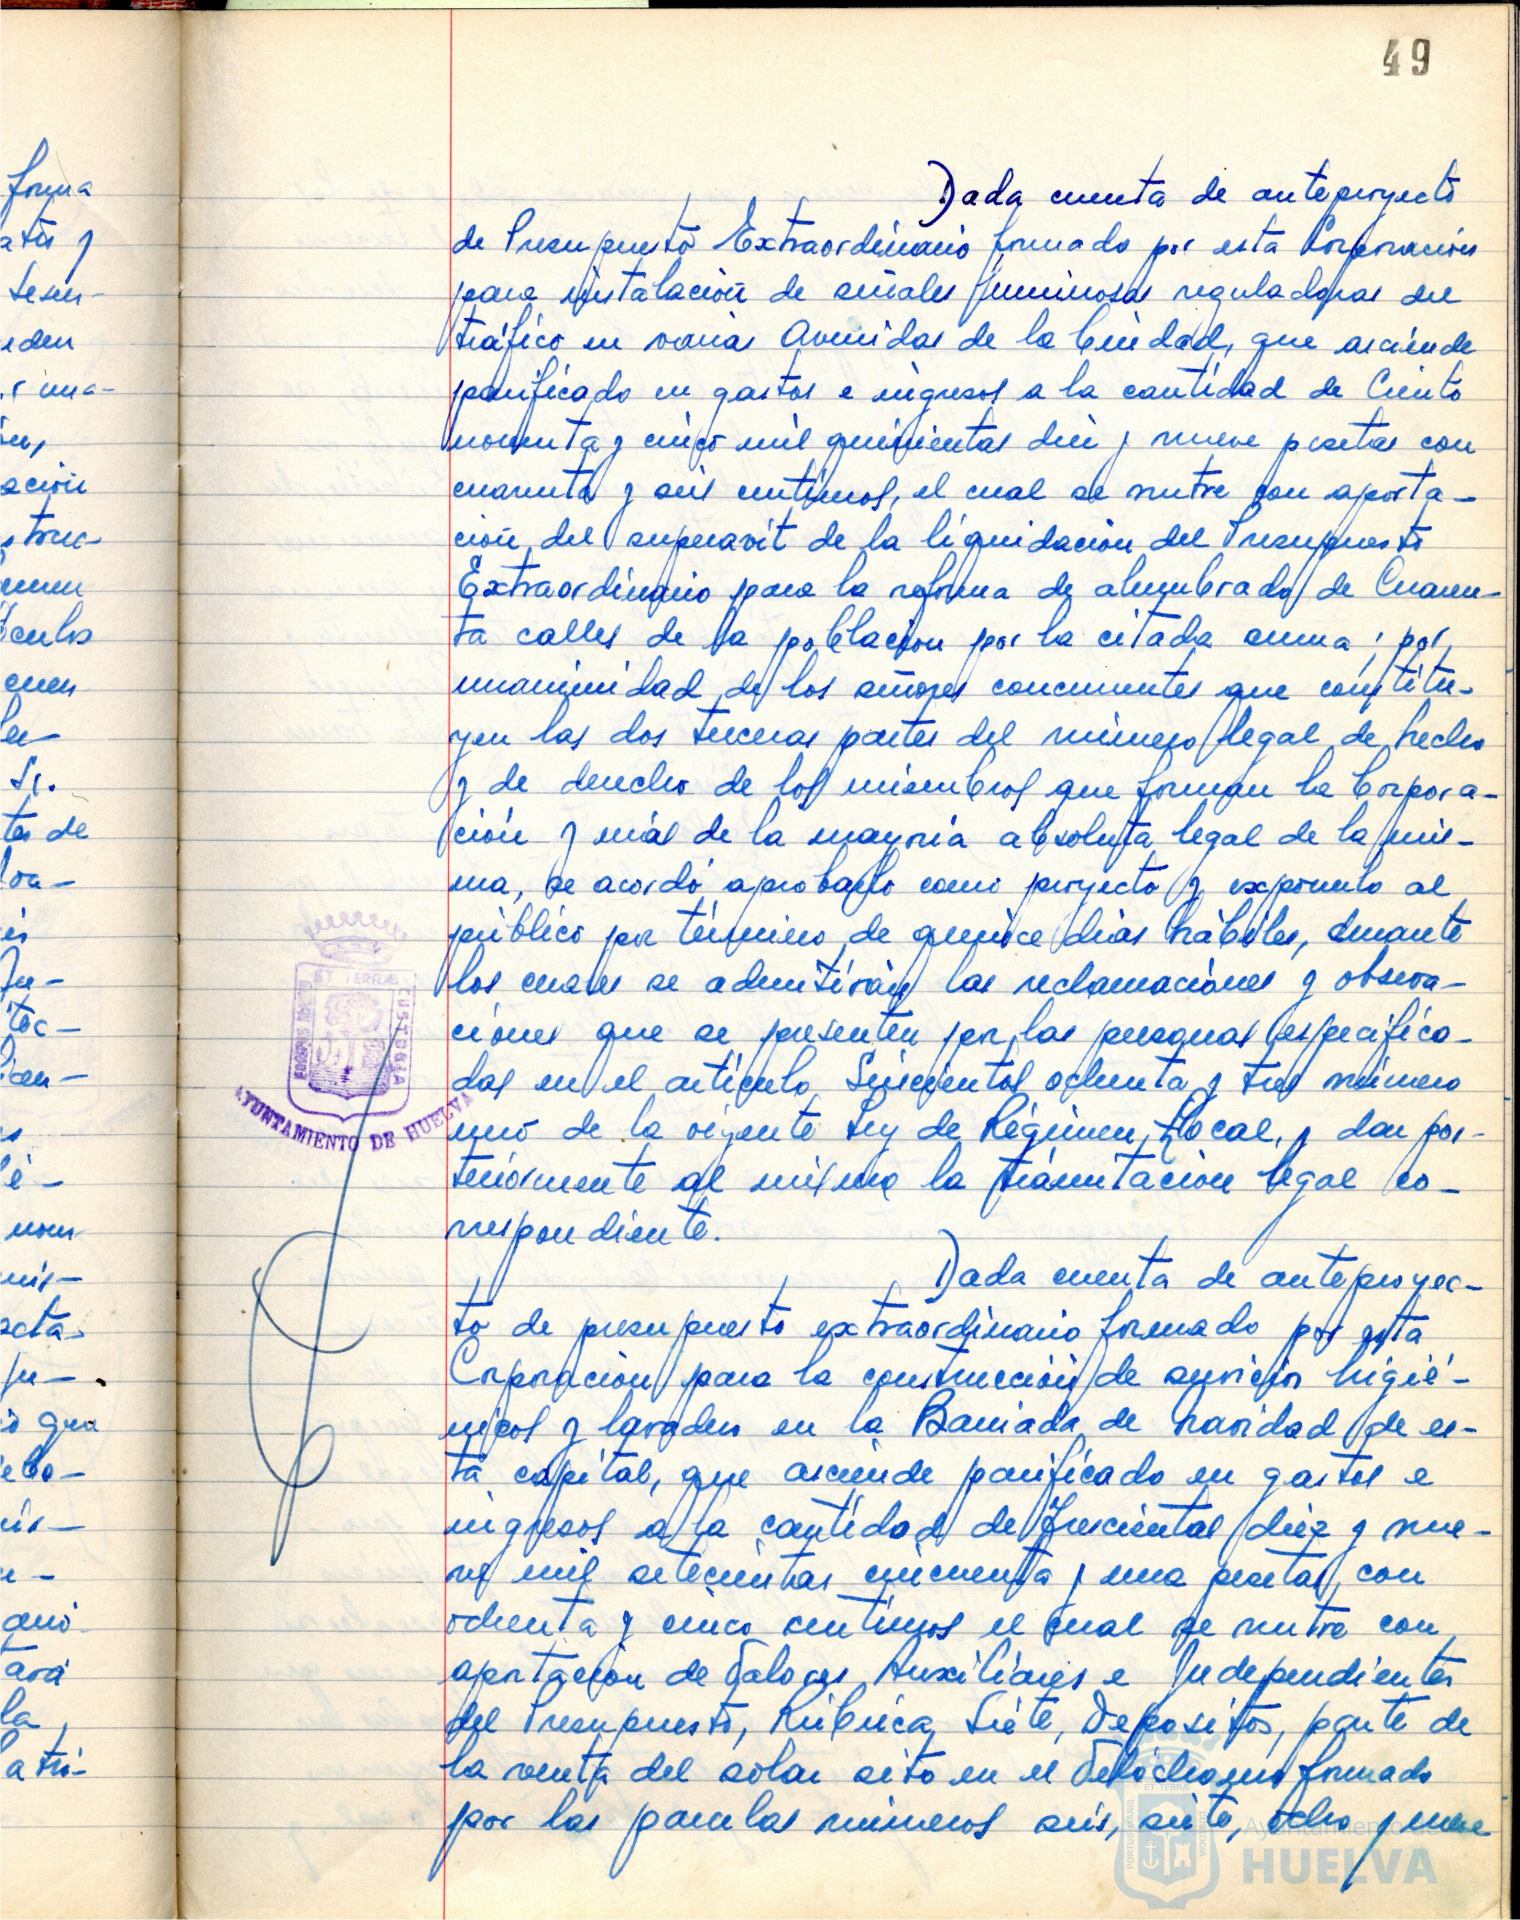 49
forma
Dada cuenta de anteproyecto
de Presupuesto Extraordinario formado por esta Corporación
para instalación de señales luminosas reguladoras del
tráfico en varias Avenidas de la Ciudad, que asciende
panificado en gastos e ingresos a la cantidad de Ciento
noventa y cinco mil quinientas diez y nueve pesetas con
cuarenta y seis centimos, el cual se nutre con aporta-
ción del superavit de la liquidación del Presupuesto
Extraordinario para la reforma de alumbrado de Cuaren-
ta calles de la población por la citada suma; por
unanimidad de los señores concurrentes que constitu-
yen las dos terceras partes del número legal de hecho
y de derecho de los miembros que forman la Corpora-
ción y más de la mayoria absoluta legal de la mis-
ma, se acordó aprobarlo como proyecto y exponerlo al
público por término de quince dias hábiles, durante
los cuales se admitirán las reclamaciones y observa-
ciones que se presenten por las personas especifica-
das en el artículo Seiscientos ochenta y tres número
uno de la vigente Ley de Régimen Local, y dar pos-
teriormente al mismo la tramitación legal co-
rrespondiente.
Dada cuenta de anteproyec-
to de presupuesto extraordinario formado por esta
Corporación para la construcción de servicios higié-
nicos y lavadero en la Barriada de navidad de es-
ta capital, que asciende panificado en gastos e
ingresos a la cantidad de Trescientas diez y nue-
ve mil setecientas cincuenta y una pesetas, con
ochenta y cinco centimos el cual se nutre con
aportación de Valores Auxiliares e Independientes
del Presupuesto, Rúbrica Siete, Depositos, parte de
la venta del solar sito en el Velódromo formado
por las parcelas números seis, siete, ocho y nueve
ET TERRÆ CUSTODIA
AYUNTAMIENTO DE HUELVA
PORTUS MARIS ET TERRÆ CUSTODIA
Ayuntamiento de
HUELVA